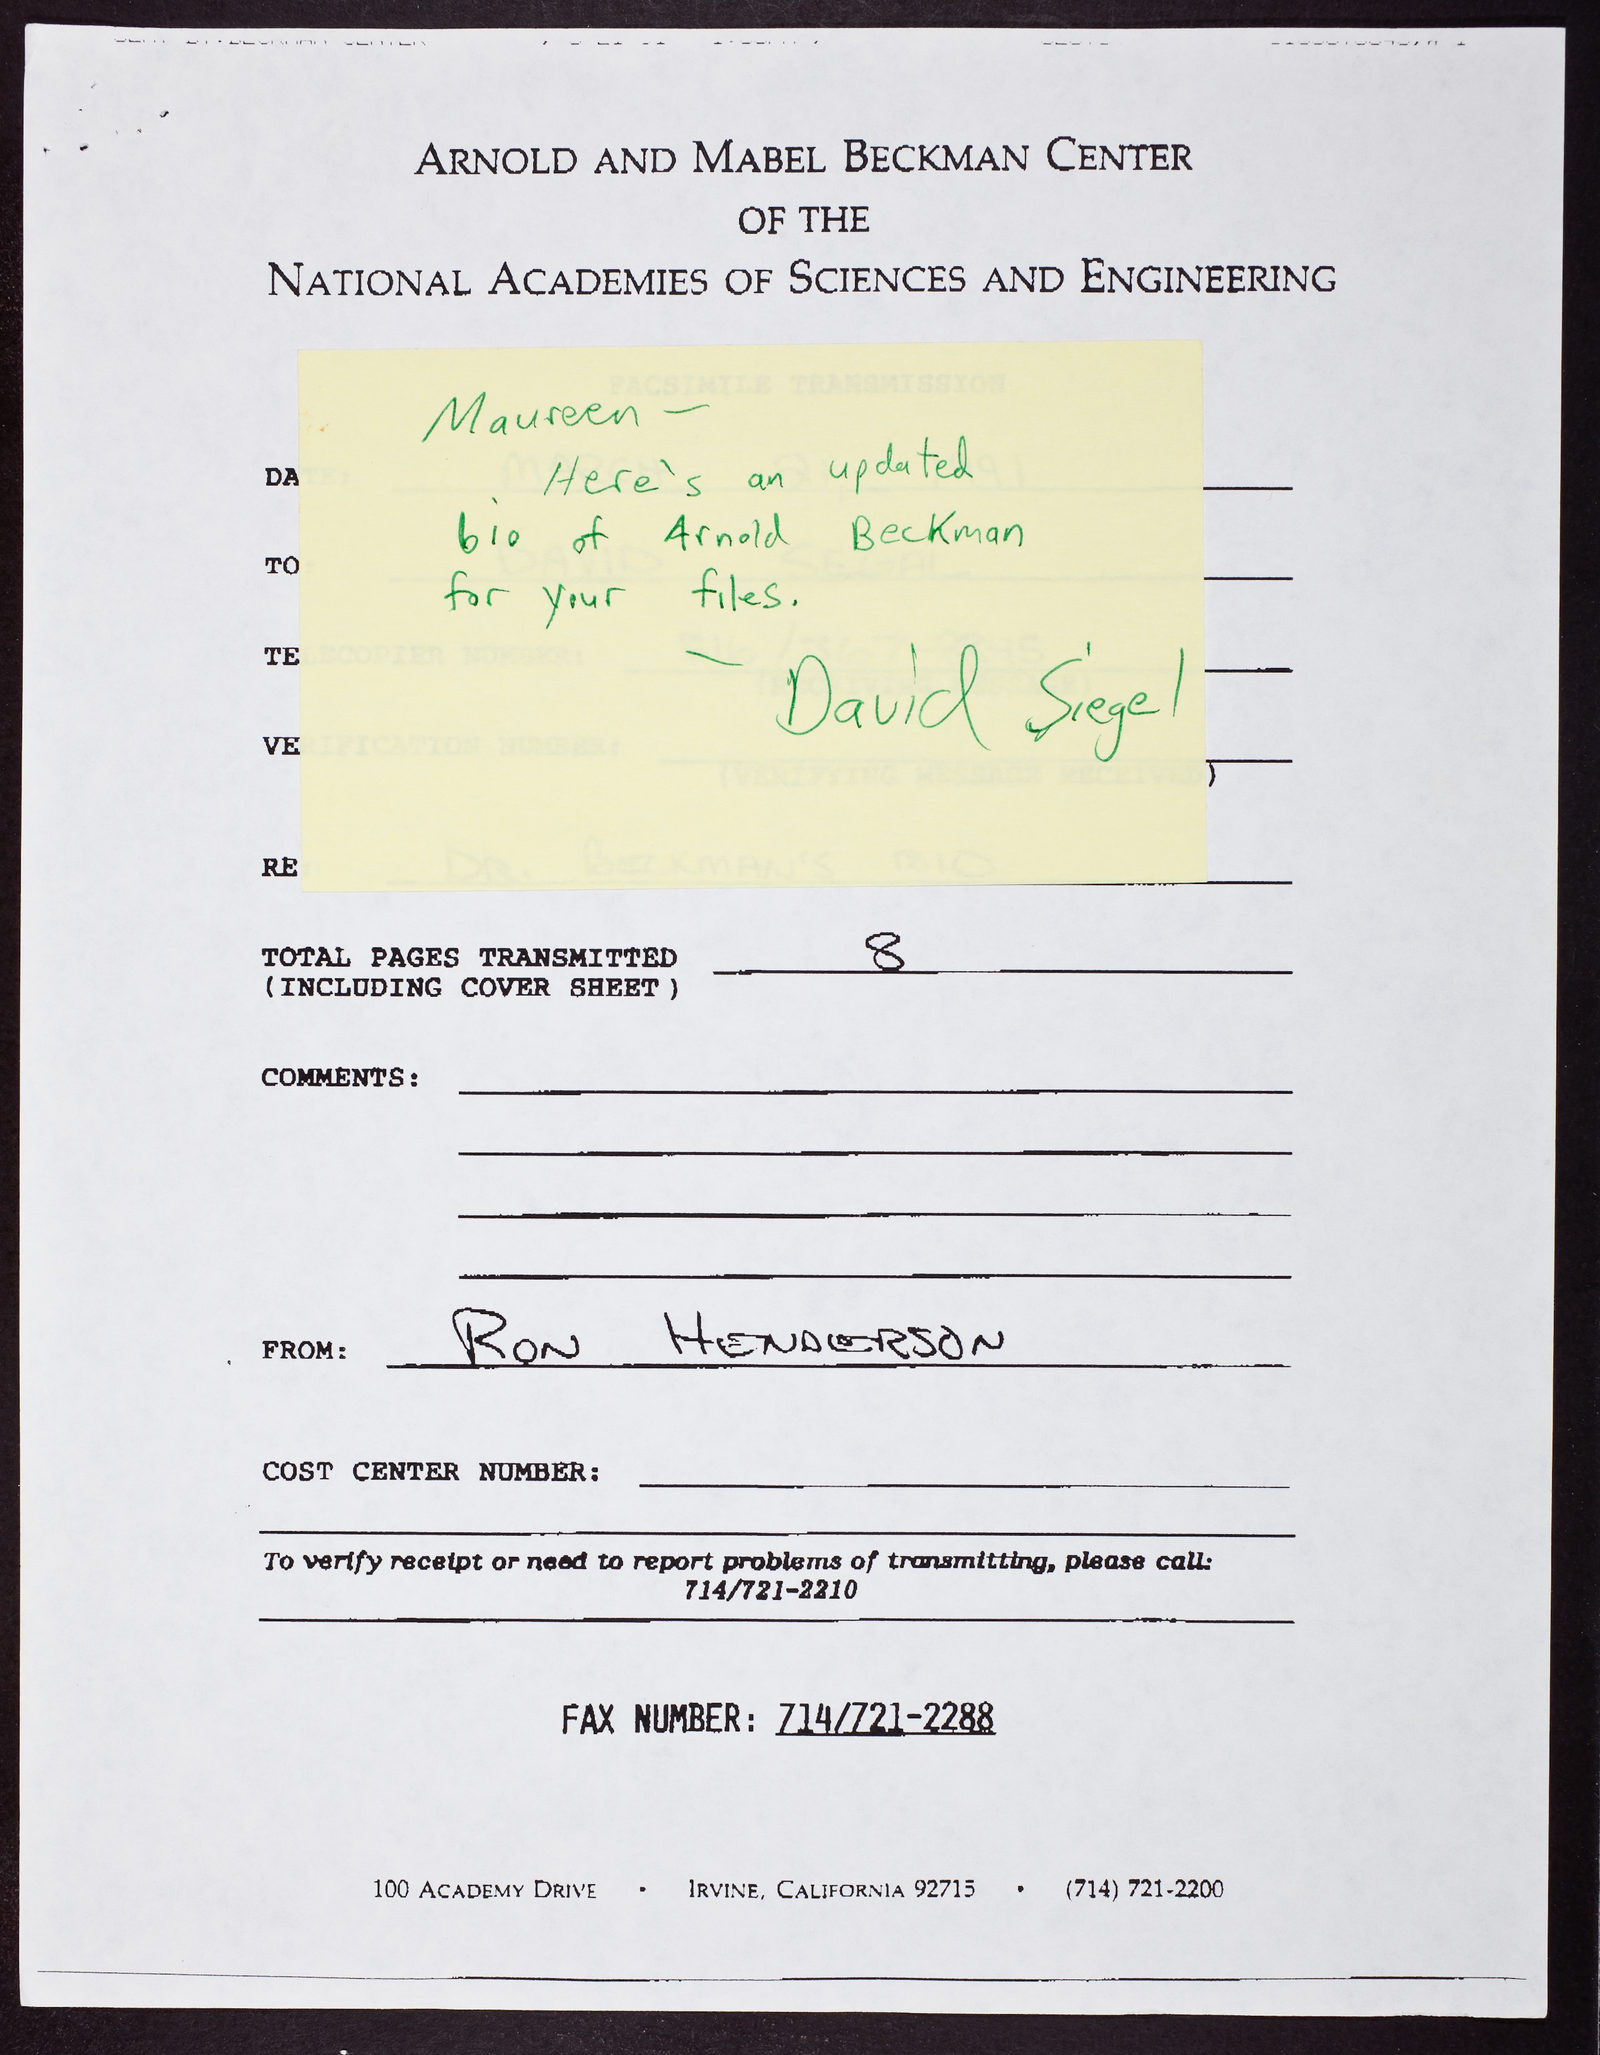 ARNOLD AND MABEL BECKMAN CENTER
OF THE
NATIONAL ACADEMIES OF SCIENCES AND ENGINEERING
FACSIMILE TRANSMISSION
Maureen —
Here's an updated
bio of Arnold Beckman
for your files.
— David Siegel
DATE: MARCH
TO: DAVID
TELECOPIER NUMBER:
VERIFICATION NUMBER:
(VERIFYING MESSAGE RECEIVED)
RE: DR. BECKMAN'S BIO
TOTAL PAGES TRANSMITTED 8
(INCLUDING COVER SHEET)
COMMENTS:
FROM: RON HENDERSON
COST CENTER NUMBER:
To verify receipt or need to report problems of transmitting, please call:
714/721-2210
FAX NUMBER: 714/721-2288
100 ACADEMY DRIVE • IRVINE, CALIFORNIA 92715 • (714) 721-2200